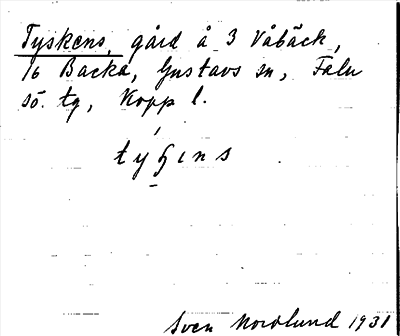 Tyskens, gård å 3 Våbäck,
16 Backa, Gustavs sn, Falu
sö. tg, Kopp l.
tyɕɩns
Sven Nordlund 1931